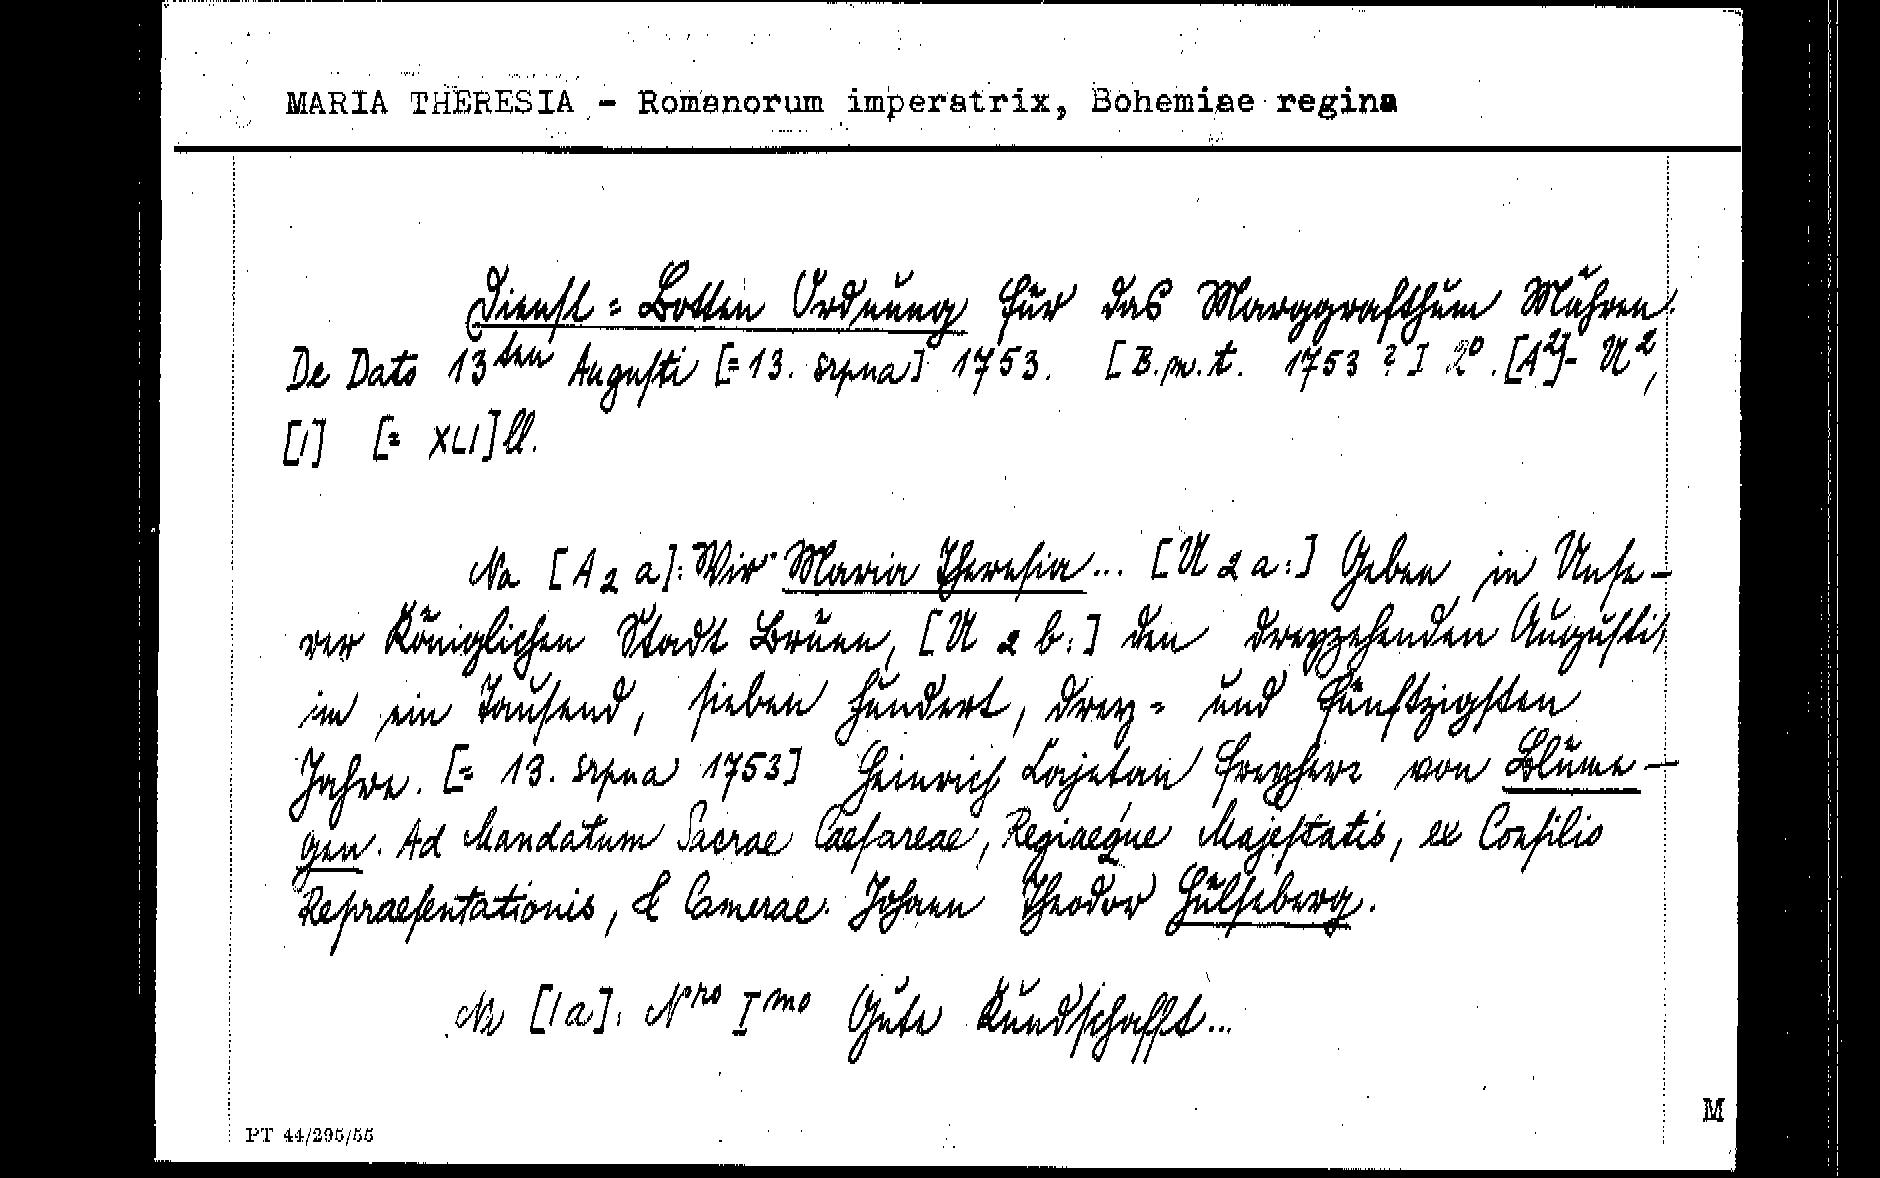 MARIA THERESIA - Romanorum imperatrix, Bohemiae regina
Dienst = Botten Ordnung für das Marggrafthum Mähren.
De Dato 13ten Augusti [= 13. srpna] 1753. [B.m.t. 1753 ?] 2º. [A2]- U2,
[1] [= XLI] ll.
Na [A 2 a]: Wir Maria Theresia... [U 2 a:] Geben in Unse-
rer Königlichen Stadt Brünn, [U 2 b:] den dreyzehenden Augusti,
im ein Tausend, sieben hundert, drey = und fünftzigsten
Jahre. [= 13. srpna 1753] Heinrich Cajetan Freyherr von Blüme-
gen. Ad Mandatum Sacrae Caesareae, Regiaeque Majestatis, ex Consilio
Repraesentationis, & Camerae. Johann Theodor Hülseberg.
Na [1a]: Nro Imo Gute Kundschafft...
PT 44/295/55
M